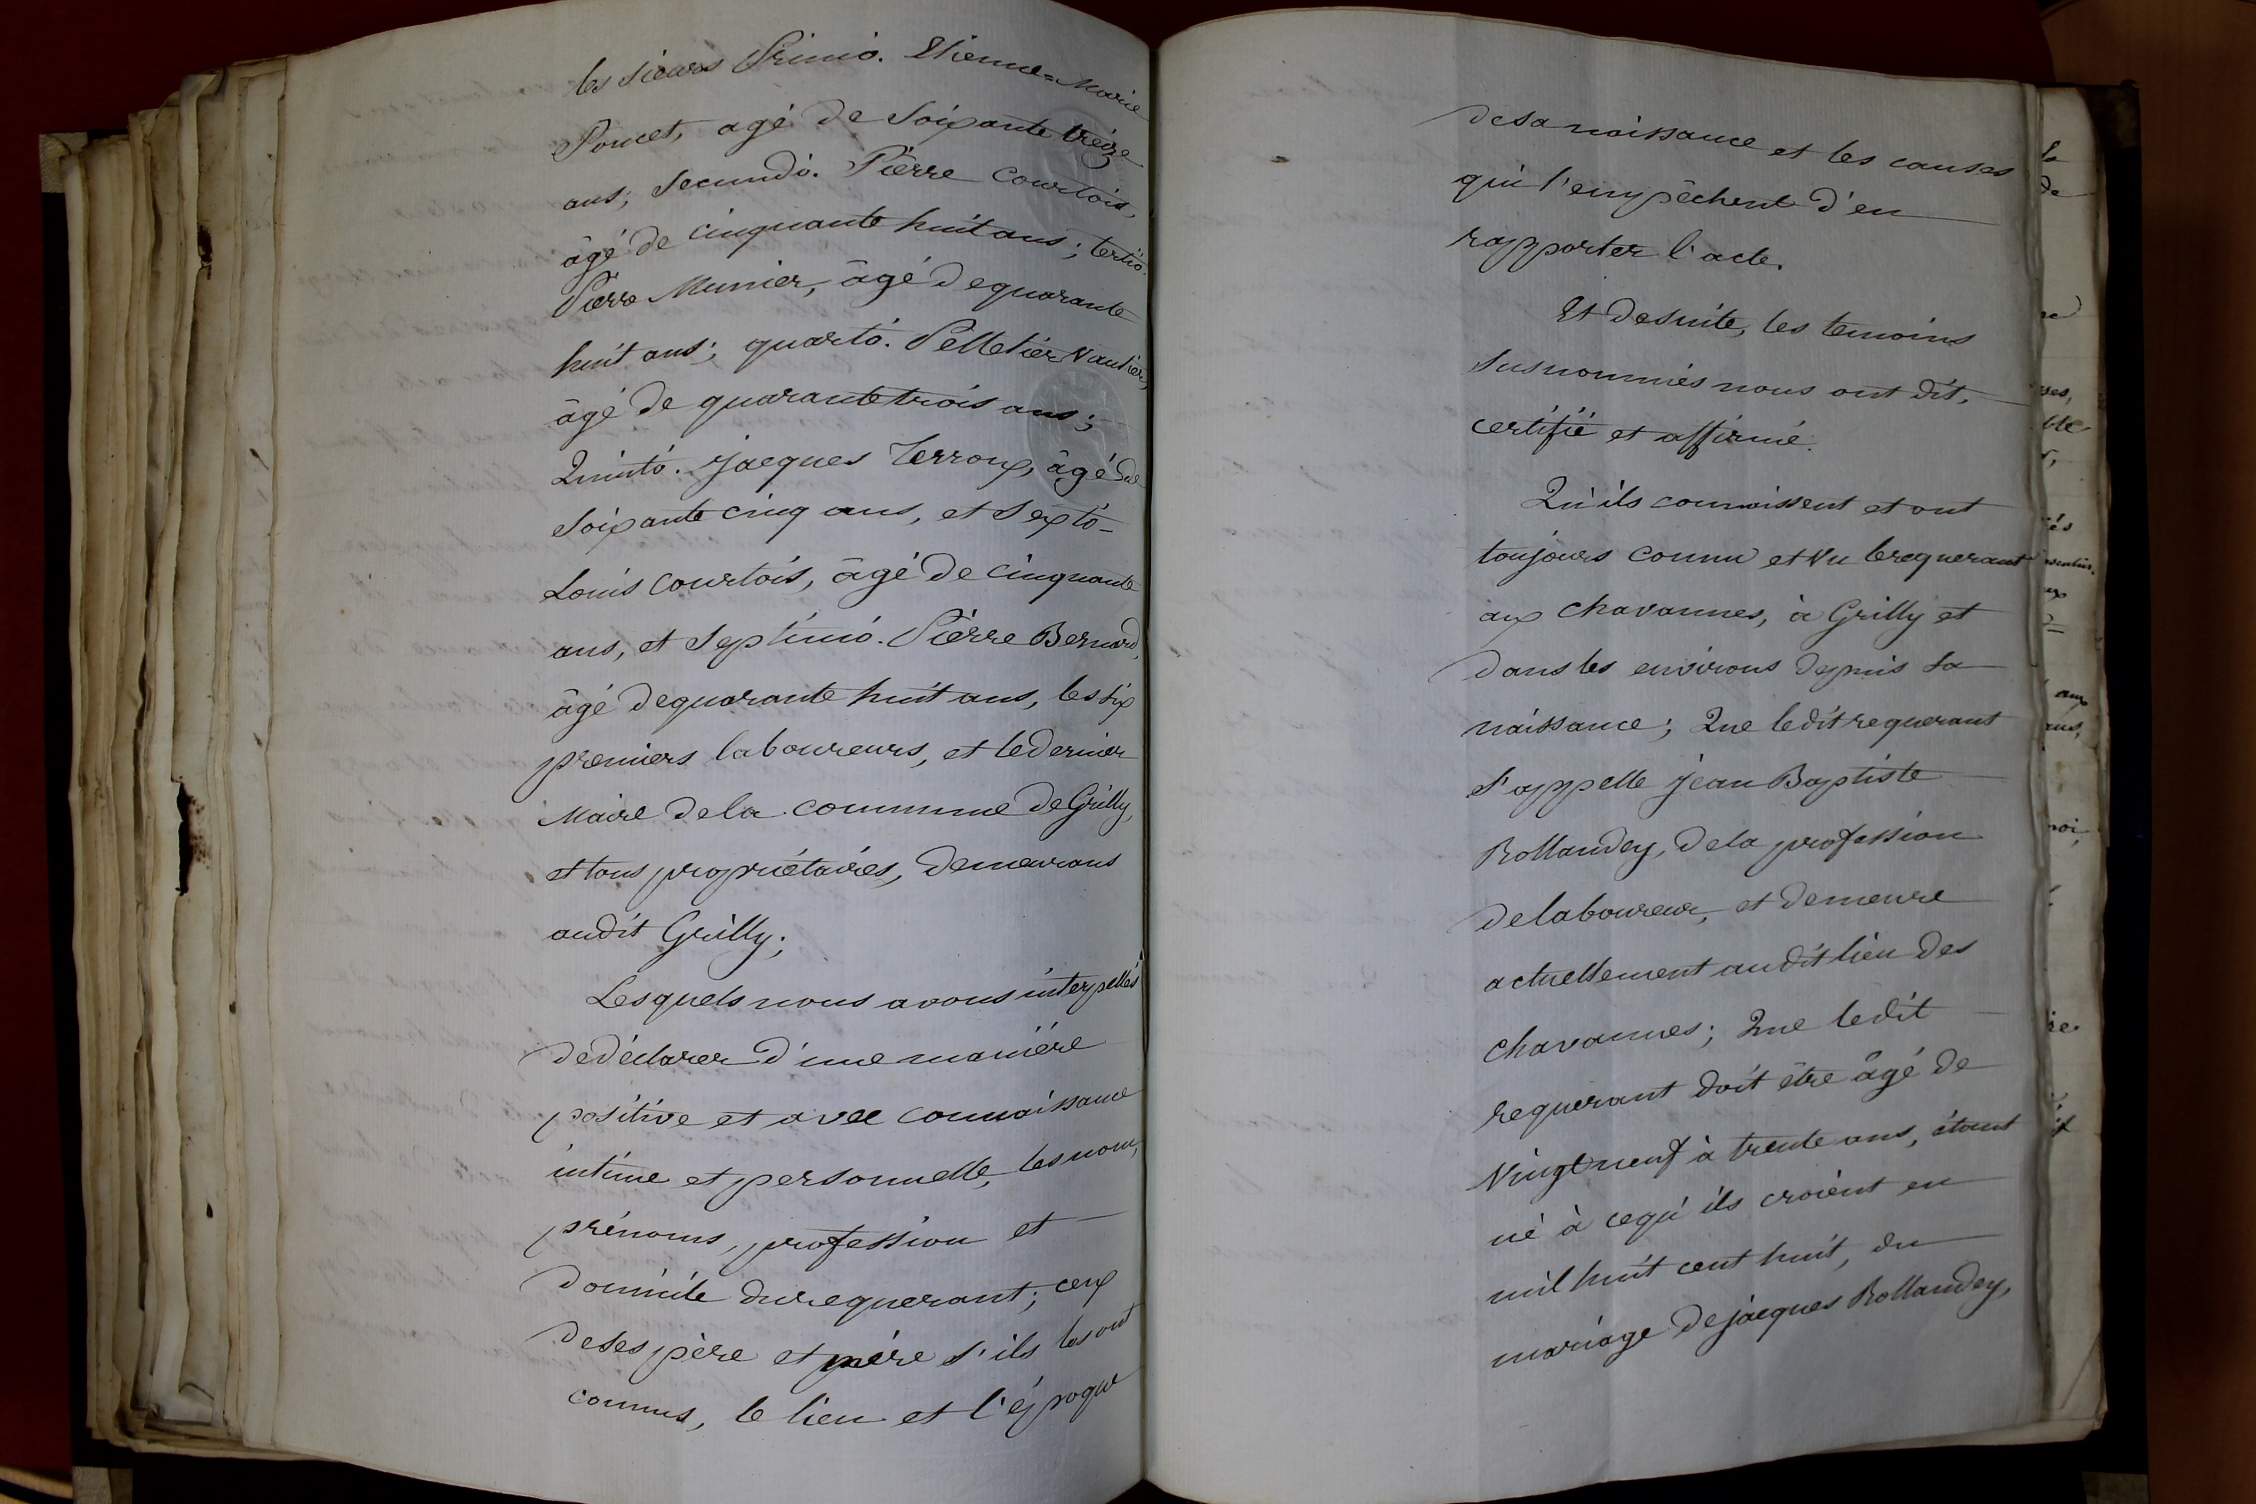 les sieurs Primò. Etienne=Marie
Poncet, agé de soixante treize
ans; Secundò. Pierre Courtois,
âgé de cinquante huit ans; tertiò.
Pierre Munier, âgé de quarante
huit ans; quartò. Pelletier Vautier,
âgé de quarante trois ans;
Quintò. Jacques Terroux, âgé de
soixante cinq ans, et Sextò-
Louis Courtois, âgé de cinquante
ans, et Septimò. Pierre Bernard,
âgé de quarante huit ans, les six
premiers laboureurs, et le dernier
Maire de la commune de Grilly,
et tous propriétaires, demeurans
audit Grilly;
Lesquels nous avons interpellés
de déclarer d'une manière
positive et avec connaissance
intime et personnelle, les nom,
prénoms, profession et
domicile du requerant; ceux
de ses père et mère s'ils les ont
connus, le lieu et l'époque
de sa naissance et les causes
qui l'empêchent d'en
rapporter l'acte.
Et de suite, les temoins
susnommés nous ont dit,
certifié et affirmé.
Qu'ils connaissent et ont
toujours connu et vu le requerant
aux Chavannes, à Grilly et
dans les environs depuis sa
naissance; Que ledit requerant
s'appelle Jean Baptiste
Rollandey, de la profession
de laboureur, et demeure
actuellement audit lieu des
Chavannes; Que ledit
requerant doit être âgé de
vingt neuf à trente ans, étant
né à ce qu'ils croient en
mil huit cent huit, du
mariage de Jacques Rollandey,